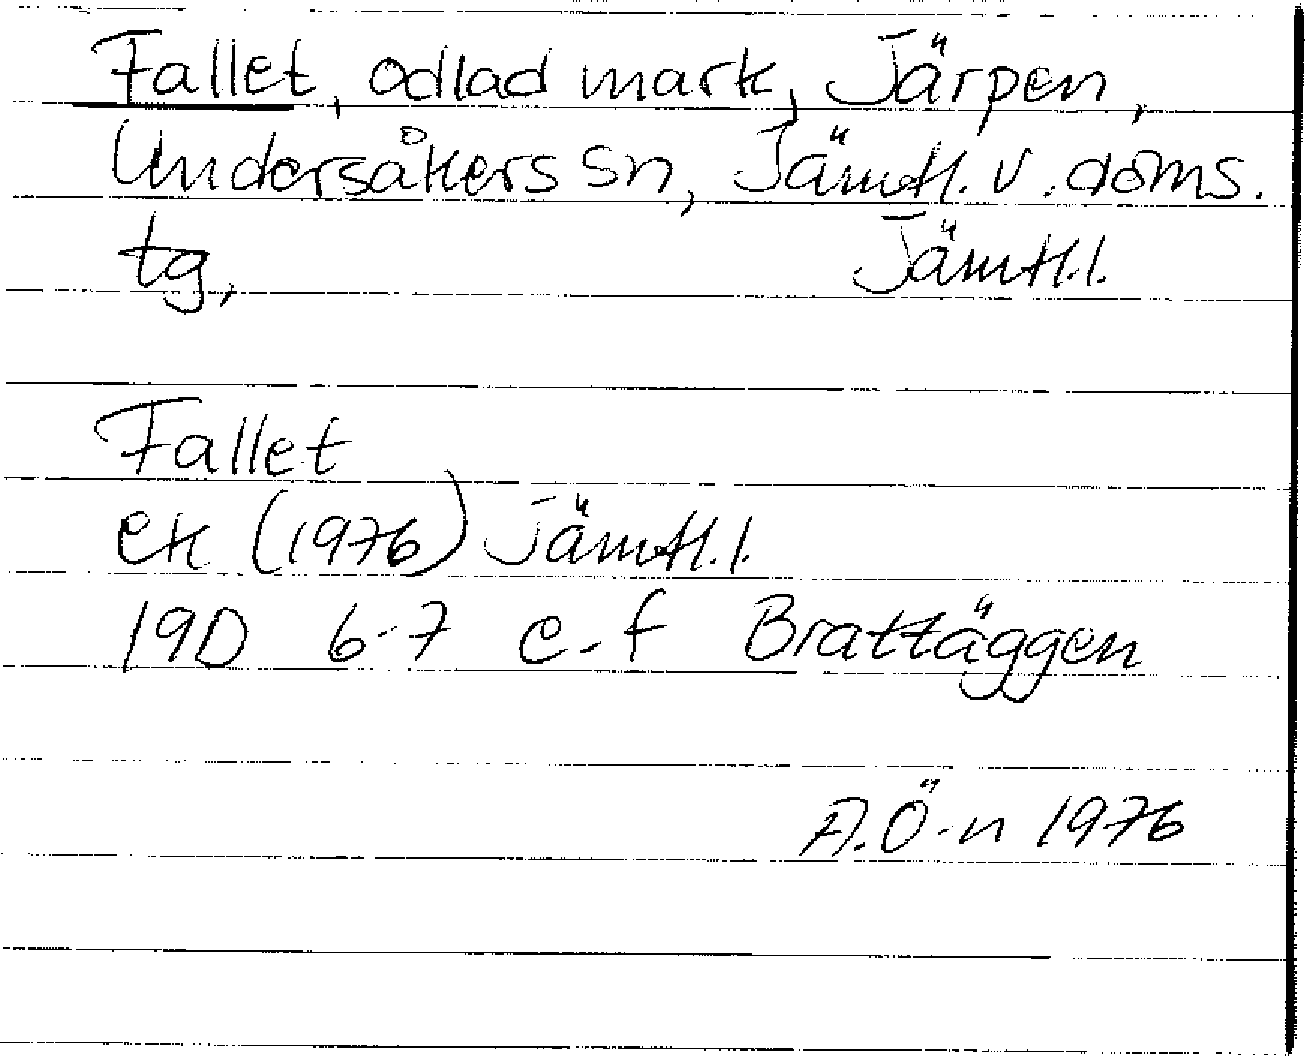 Fallet, odlad mark, Järpen,
Undersåkers sn, Jämtl. v. doms.
tg, Jämtl.l.
Fallet
ek (1976) Jämtl.l.
19D 6-7 e-f Brattäggen
A.Ö-n 1976